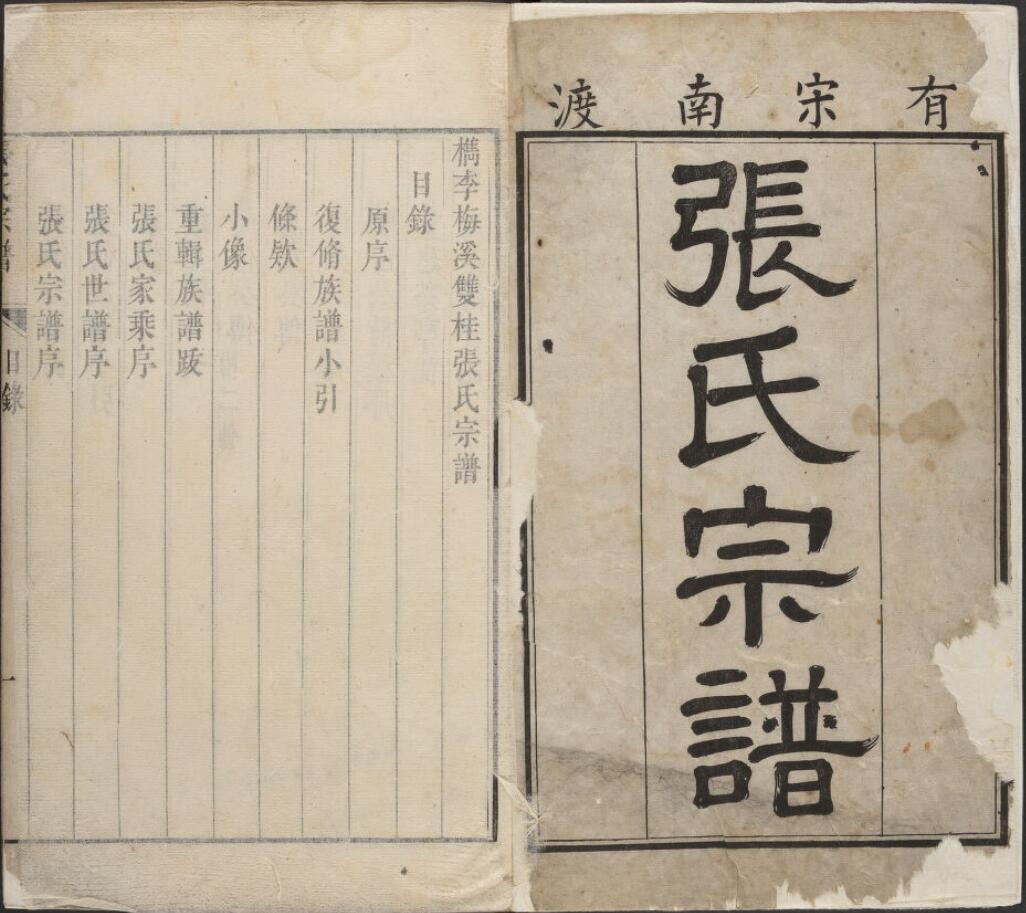 有宋南渡
張氏宗譜
檇李梅溪雙桂張氏宗譜
目錄
原序
復脩族譜小引
條欵
小像
重輯族譜跋
張氏家乘序
張氏世譜序
張氏宗譜序
氏宗譜
目錄
一